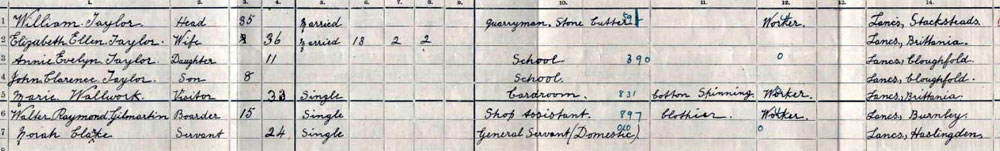 1. 2. 3. 4. 5. 6. 7. 8. 10. 11. 12. 14.
1 William Taylor Head 35 Married Quarryman, Stone Cutter Worker Lancs, Stacksteads
2 Elizabeth Ellen Taylor. Wife 36 Married 13 2 2 Lancs, Brittania.
3 Annie Evelyn Taylor. Daughter 11 School 390 0 Lancs, Cloughfold.
4 John Clarence Taylor. Son 8 School. Lancs, Cloughfold.
5 Marie Wallwork. Visitor 33 Single Cardroom. 831 Cotton Spinning Worker. Lancs, Brittania.
6 Walter Raymond Gilmartin Boarder 15 Single Shop Assistant. 897 Clothier. Worker Lancs, Burnley
7 Norah Clake Servant 24 Single General Servant (Domestic) 0 Lancs, Haslingden
8